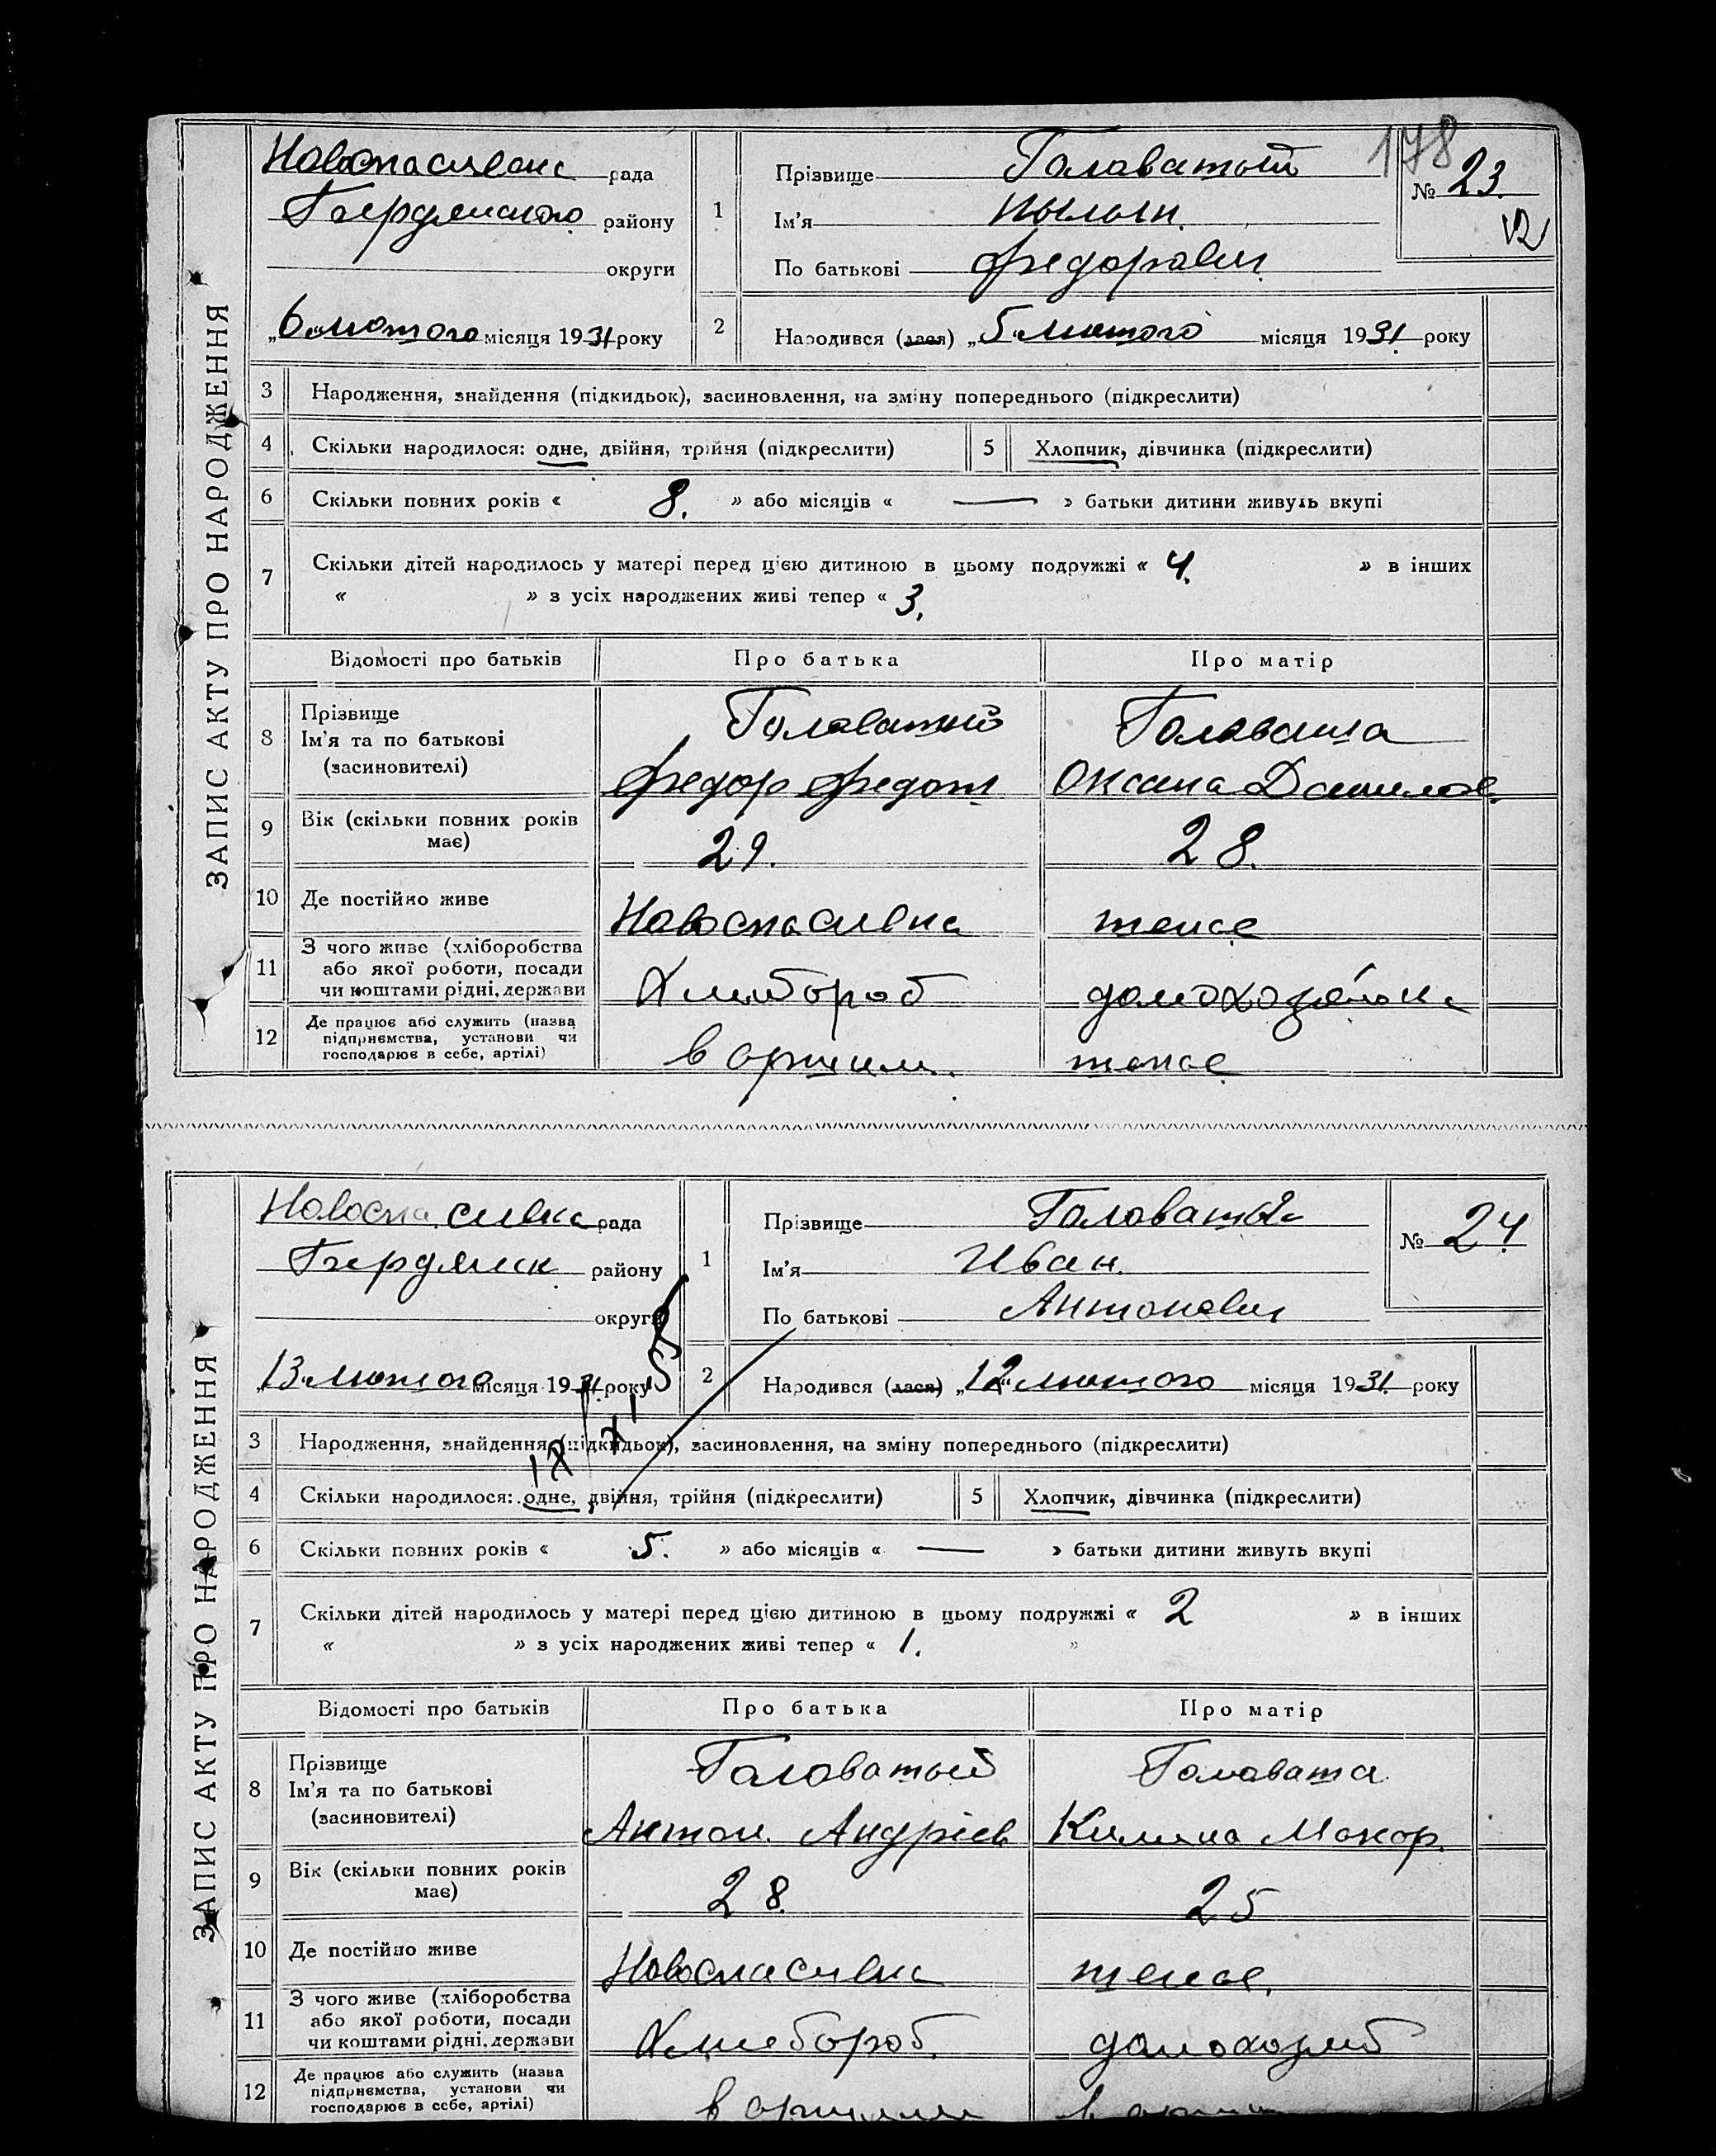 ЗАПИС АКТУ ПРО НАРОДЖЕННЯ
Новоспасивка рада
Бердянского району
округи
„6“ лютого місяця 1931 року
178
№ 23
1 Прізвище Головатый
Ім'я
По батькові Федорович
2 Народився (лася) „5“ лютого місяця 1931 року
3 Народження, знайдення (підкидьок), засиновлення, на зміну попереднього (підкреслити)
4 Скільки народилося: одне, двійня, трійня (підкреслити) 5 Хлопчик, дівчинка (підкреслити)
6 Скільки повних років « 8. » або місяців « — » батьки дитини живуть вкупі
7 Скільки дітей народилось у матері перед цією дитиною в цьому подружжі « 4. » в інших
« » з усіх народжених живі тепер « 3.
Відомості про батьків Про батька Про матір
8 Прізвище Головатий Головата
Ім'я та по батькові
(засиновителі) Федор Федот Оксана Данилов.
9 Вік (скільки повних років
має) 29. 28.
10 Де постійно живе Новоспасивка тоже
11 З чого живе (хліборобства
або якої роботи, посади
чи коштами рідні, держави Хлибороб домохозяйка
12 Де працює або служить (назва
підприємства, установи чи
господарює в себе, артілі) в артили. тоже
ЗАПИС АКТУ ПРО НАРОДЖЕННЯ
Новоспасивка рада
Бердянск району
округи
„13“ лютого місяця 1931 року
№ 24
1 Прізвище Головатый
Ім'я Иван.
По батькові Антонович
2 Народився (лася) „12“ лютого місяця 1931 року
3 Народження, знайдення (підкидьок), засиновлення, на зміну попереднього (підкреслити)
4 Скільки народилося: одне, двійня, трійня (підкреслити) 5 Хлопчик, дівчинка (підкреслити)
6 Скільки повних років « 5. » або місяців « — » батьки дитини живуть вкупі
7 Скільки дітей народилось у матері перед цією дитиною в цьому подружжі « 2 » в інших
« » з усіх народжених живі тепер « 1. »
Відомості про батьків Про батька Про матір
8 Прізвище Головатый Головата
Ім'я та по батькові
(засиновителі) Антон. Андріев Килина Макар.
9 Вік (скільки повних років
має) 28. 25
10 Де постійно живе Новоспасивка тоже,
11 З чого живе (хліборобства
або якої роботи, посади
чи коштами рідні, держави Хлибороб. домохозяй
12 Де працює або служить (назва
підприємства, установи чи
господарює в себе, артілі) в артили в